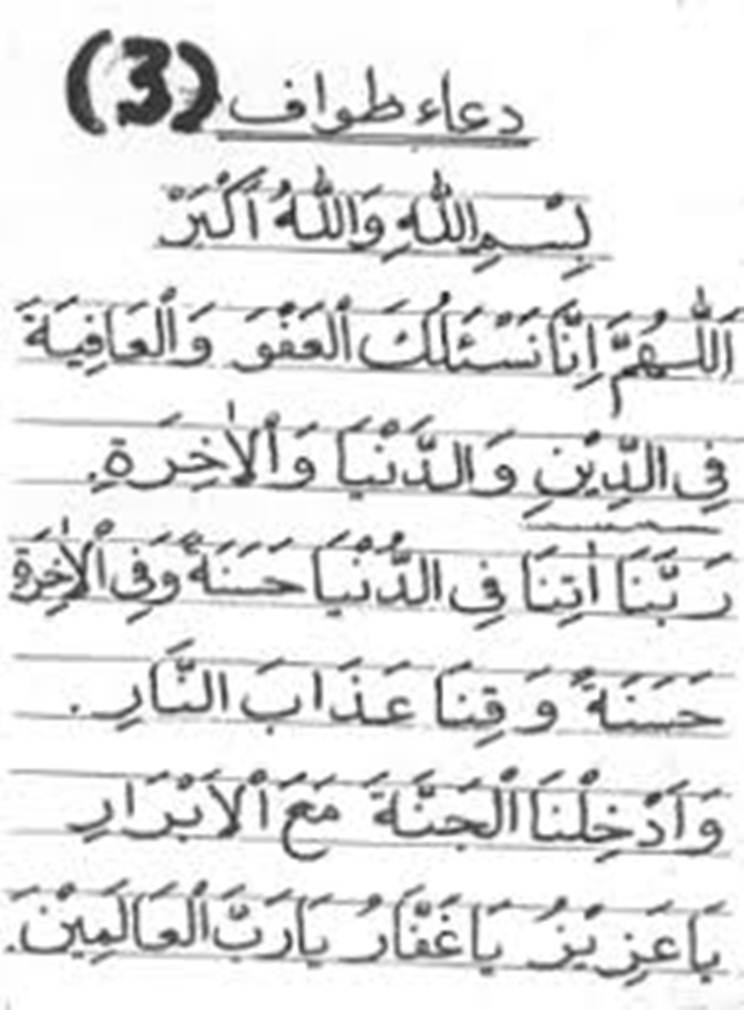 دعاء طواف (3)
بِسْمِ اللّٰهِ وَاللّٰهُ أَكْبَرْ
اَللّٰهُمَّ اِنَّا نَسْئَلُكَ الْعَفْوَ وَالْعَافِيَةَ
فِي الدِّيْنِ وَالدَّنْيَا وَالْاٰخِرَةِ.
رَبَّنَا اٰتِنَا فِي الدُّنْيَا حَسَنَةً وَفِي الْاٰخِرَةِ
حَسَنَةً وَقِنَا عَذَابَ النَّارِ.
وَاَدْخِلْنَا الْجَنَّةَ مَعَ الْاَبْرَارِ
يَا عَزِيْزُ يَا غَفَّارُ يَا رَبَّ الْعَالَمِيْنَ.